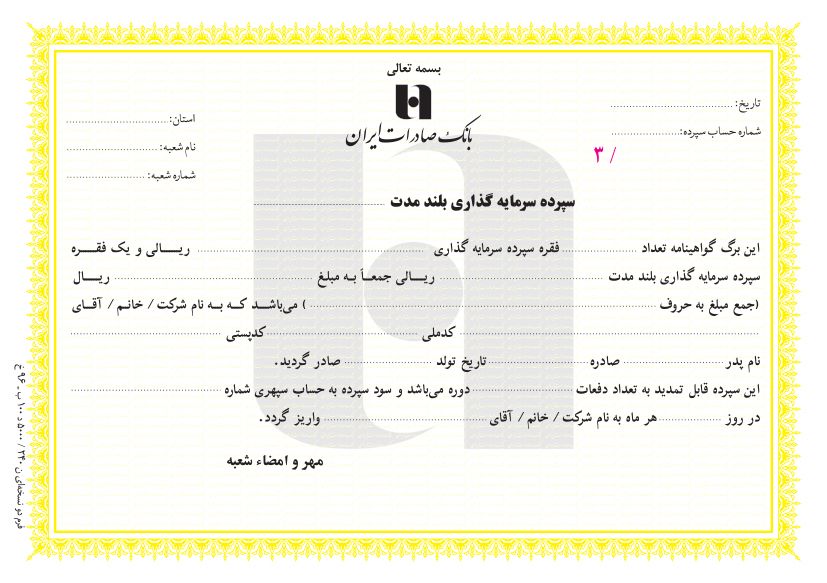 بسمه تعالی
بانک صادرات ایران
تاریخ: ........................................
شماره حساب سپرده: ......................
۳ /
استان: ........................................
نام شعبه: ..............................
شماره شعبه: ..........................
سپرده سرمایه گذاری بلند مدت ........................................
این برگ گواهینامه تعداد ........................ فقره سپرده سرمایه گذاری ........................................ ریــالی و یک فقــره
سپرده سرمایه گذاری بلند مدت ........................................ ریــالی جمعـاً بـه مبلغ ........................................ ریــال
(جمع مبلغ به حروف ........................................ ) می‌باشــد کــه بــه نام شرکت / خانـم / آقـای
........................................ کدملی ........................................ کدپستی ........................................
نام پدر ........................ صادره ........................ تاریخ تولد ........................ صادر گردید.
این سپرده قابل تمدید به تعداد دفعات ........................ دوره می‌باشد و سود سپرده به حساب سپهری شماره ........................................
در روز .................... هر ماه به نام شرکت / خانم / آقای ........................................ واریز گردد.
مهر و امضاء شعبه
فرم دو نسخه‌ای ن ۲۴۰ / ۵۰۰۰ د ۱۰۰ ب ـ ۹۶ خ